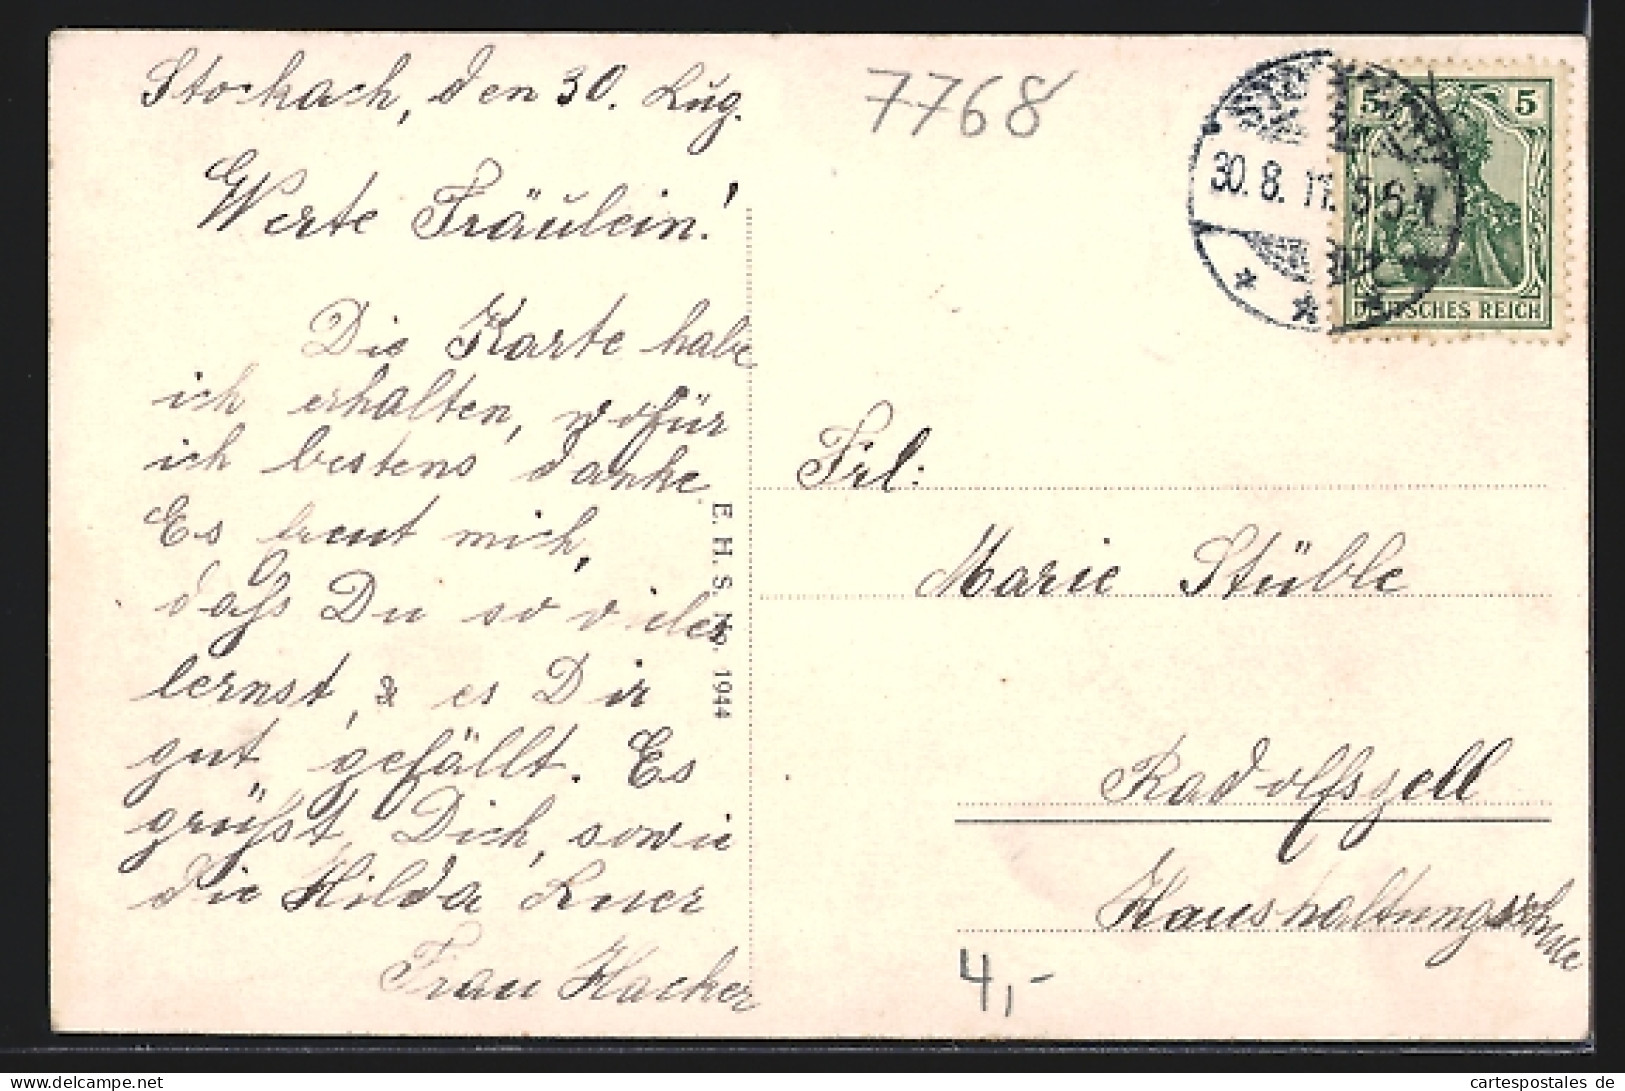 Stockach, den 30. Aug.
Werte Fräulein!
Die Karte habe
ich erhalten, wofür
ich bestens danke
Es freut mich,
dass Du so vieler
lernst, & es Dir
gut gefällt. Es
grüsst Dich, sowie
die Hilda
Frau Hacker
E. H. S. No. 1944
7768
30. 8. 11. 5-6 N.
5 5
DEUTSCHES REICH
Frl:
Marie Stüble
Radolfszell
Haushaltungsschule
4,-
www.cartespostales.de
cartespostales de